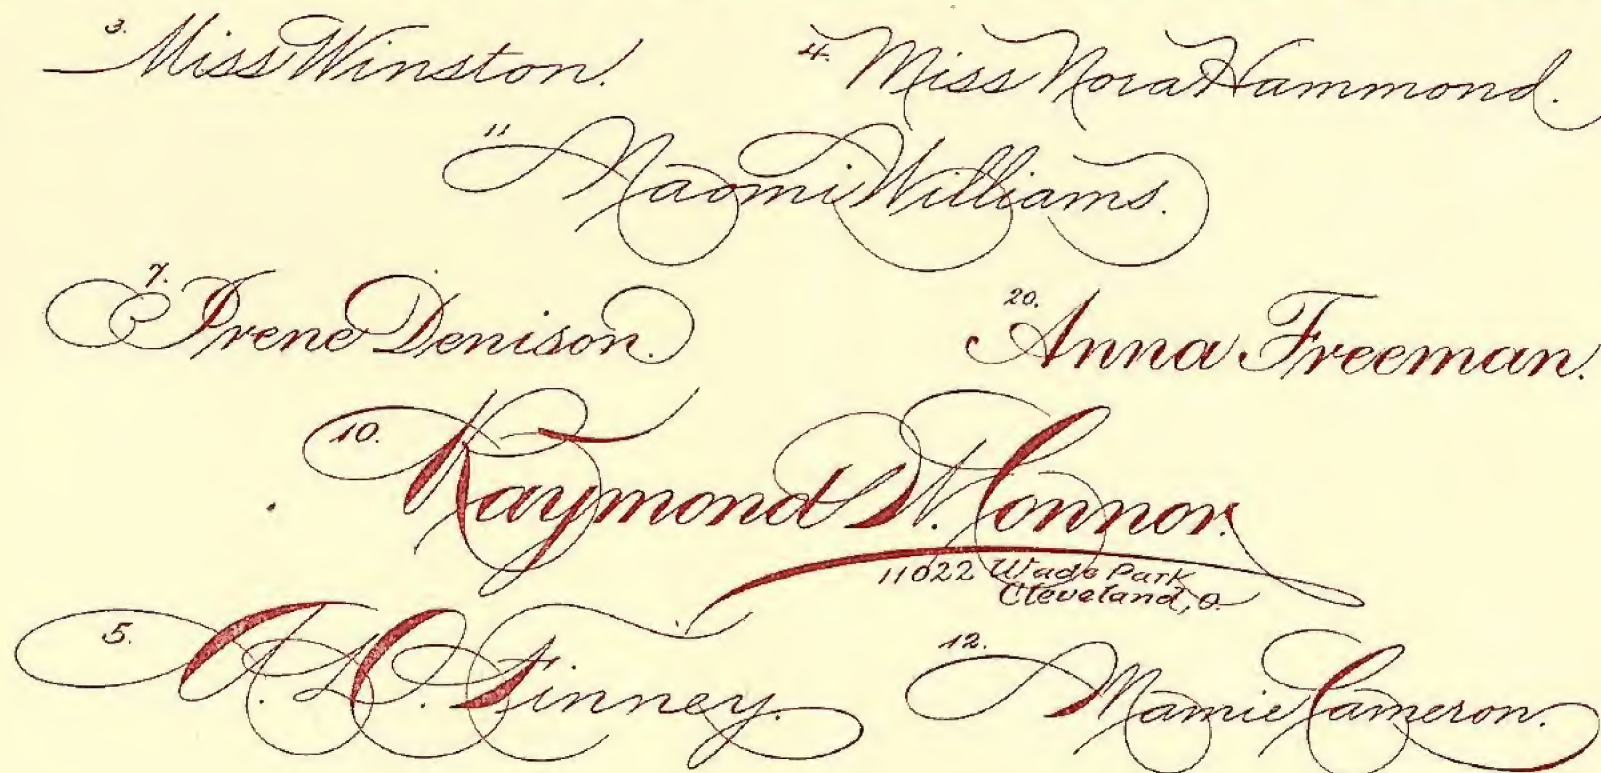 3. Miss Winston.
4. Miss Nora Hammond.
11. Naomi Williams.
7. Irene Denison.
20. Anna Freeman.
10. Raymond W. Connor.
11022 Wade Park
Cleveland, O.
5. D. Finney.
12. Mamie Cameron.